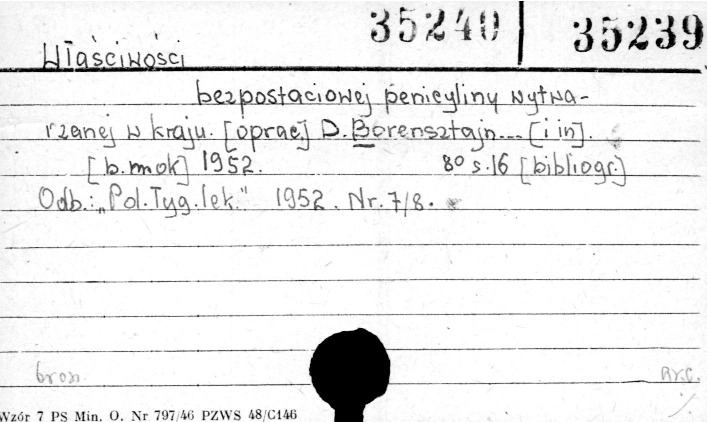 35240 35239
Właściwości
bezpostaciowej penicyliny wytwa-
rzanej w kraju. [oprac] D. Borensztajn... [i in].
[b.mok] 1952. 8° s.16 [bibliogr.]
Odb.: „Pol.Tyg.lek." 1952. Nr. 7/8.
bros.
Wzór 7 PS Min. O. Nr 797/46 PZWS 48/C146